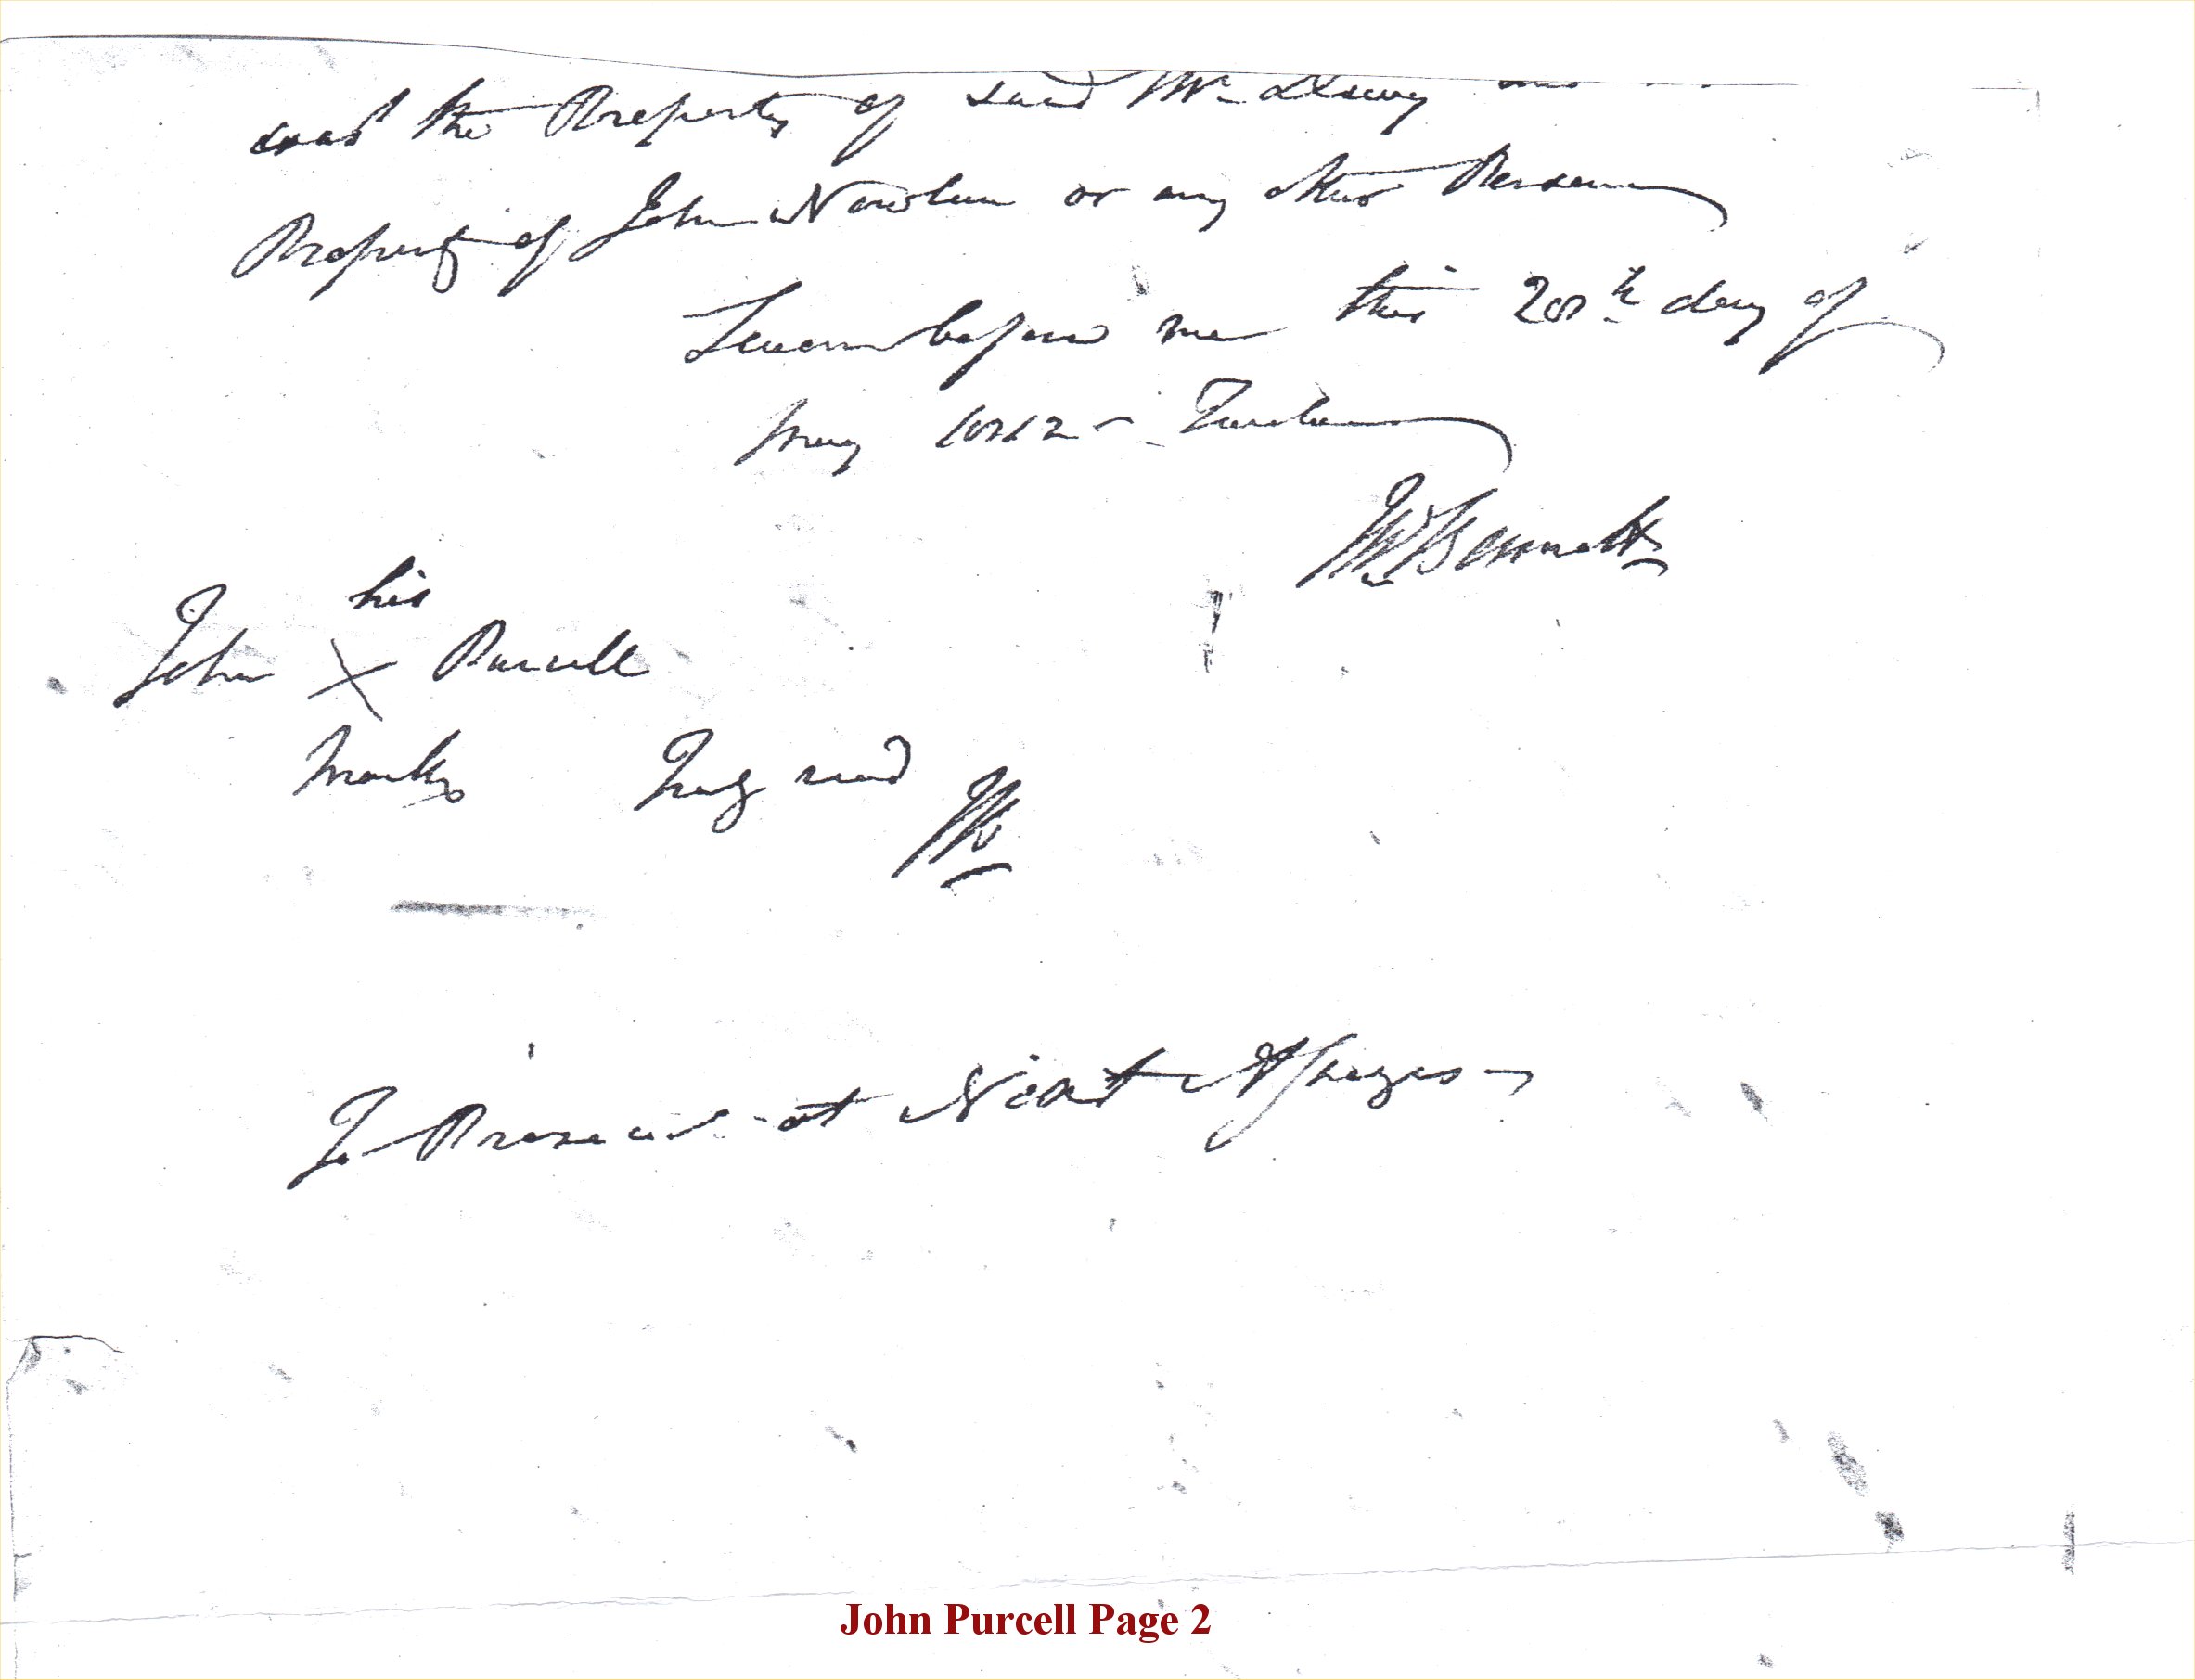 was the Property of said Mr
Property of John Nowlan or any other Person
Sworn before me this 20th day of
May
W Bennett
his
John X Purcell
mark
read
To Prosecute at Next Assizes
John Purcell Page 2